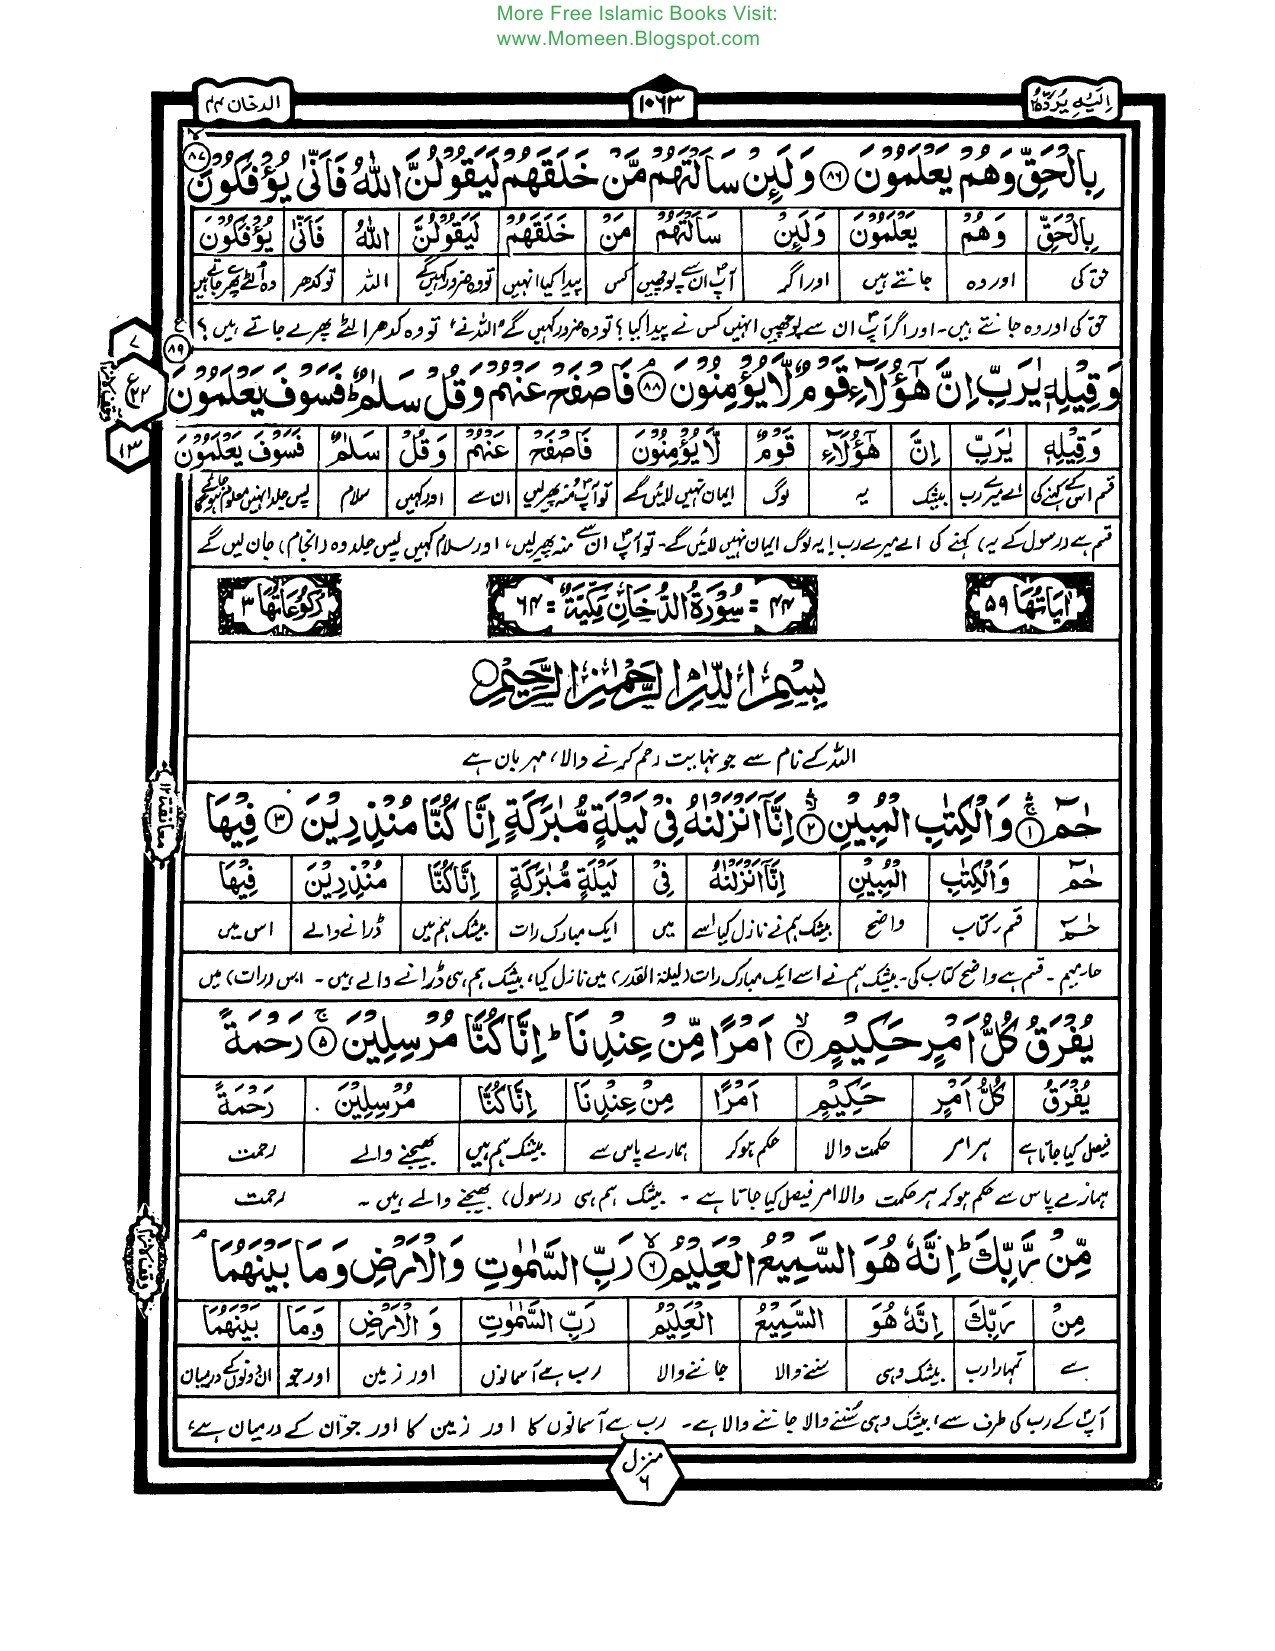 More Free Islamic Books Visit:
www.Momeen.Blogspot.com
اِلَیْهِ یُرَدُّ ۲۵
۱۰۶۳
الدخان ۴۴
بِالْحَقِّ وَهُمْ يَعْلَمُوْنَ ﴿۸۶﴾ وَلَئِنْ سَاَلْتَهُمْ مَّنْ خَلَقَهُمْ لَيَقُوْلُنَّ اللّٰهُ فَاَنّٰى يُؤْفَكُوْنَ ﴿۸۷﴾
بِالْحَقِّ وَهُمْ يَعْلَمُوْنَ وَلَئِنْ سَاَلْتَهُمْ مَنْ خَلَقَهُمْ لَيَقُوْلُنَّ اللّٰهُ فَاَنّٰى يُؤْفَكُوْنَ
حق کی اور وہ جانتے ہیں اور اگر آپؐ ان سے پوچھیں کس پیدا کیا انہیں تو وہ ضرور کہیں گے اللہ تو کدھر وہ الٹے پھرے جاتے ہیں
حق کی اور وہ جانتے ہیں۔ اور اگر آپؐ ان سے پوچھیں انہیں کس نے پیدا کیا؟ تو وہ ضرور کہیں گے "اللہ نے" تو وہ کدھر الٹے پھرے جاتے ہیں؟
وَقِيْلِهٖ يٰرَبِّ اِنَّ هٰٓؤُلَآءِ قَوْمٌ لَّا يُؤْمِنُوْنَ ﴿۸۸﴾ فَاصْفَحْ عَنْهُمْ وَقُلْ سَلٰمٌ ؕ فَسَوْفَ يَعْلَمُوْنَ ﴿۸۹﴾
۷
ع
۲۲
۱۳
وَقِيْلِهٖ يٰرَبِّ اِنَّ هٰٓؤُلَآءِ قَوْمٌ لَّا يُؤْمِنُوْنَ فَاصْفَحْ عَنْهُمْ وَقُلْ سَلٰمٌ فَسَوْفَ يَعْلَمُوْنَ
قسم اس کے کہنے کی اے میرے رب بیشک یہ لوگ ایمان نہیں لائیں گے تو آپؐ منہ پھیر لیں ان سے اور کہیں سلام پس جلد انہیں معلوم ہو جائے گا
قسم ہے (رسول کے یہ) کہنے کی اے میرے رب! یہ لوگ ایمان نہیں لائیں گے۔ تو آپؐ ان سے منہ پھیر لیں، اور سلام کہیں پس جلد وہ (انجام) جان لیں گے
اٰيَاتُهَا ۵۹
۴۴ = سُوْرَةُ الدُّخَانِ مَكِّيَّةٌ = ۶۴
رُكُوْعَاتُهَا ۳
بِسْمِ اللّٰهِ الرَّحْمٰنِ الرَّحِيْمِ
اللہ کے نام سے جو نہایت رحم کرنے والا، مہربان ہے
حٰمٓ ﴿۱﴾ وَالْكِتٰبِ الْمُبِيْنِ ﴿۲﴾ اِنَّآ اَنْزَلْنٰهُ فِيْ لَيْلَةٍ مُّبٰرَكَةٍ اِنَّا كُنَّا مُنْذِرِيْنَ ﴿۳﴾ فِيْهَا
معانقة ۱۲
حٰمٓ وَالْكِتٰبِ الْمُبِيْنِ اِنَّآ اَنْزَلْنٰهُ فِيْ لَيْلَةٍ مُّبٰرَكَةٍ اِنَّا كُنَّا مُنْذِرِيْنَ فِيْهَا
حٰمٓ قسم کتاب واضح بیشک ہم نے نازل کیا اسے میں ایک مبارک رات بیشک ہم ہیں ڈرانے والے اس میں
حا۔میم۔ قسم ہے واضح کتاب کی۔ بیشک ہم نے اسے ایک مبارک رات (لیلۃ القدر) میں نازل کیا، بیشک ہم ہی ڈرانے والے ہیں۔ اس (رات) میں
يُفْرَقُ كُلُّ اَمْرٍ حَكِيْمٍ ﴿۴﴾ اَمْرًا مِّنْ عِنْدِنَا ؕ اِنَّا كُنَّا مُرْسِلِيْنَ ﴿۵﴾ رَحْمَةً
يُفْرَقُ كُلُّ اَمْرٍ حَكِيْمٍ اَمْرًا مِنْ عِنْدِنَا اِنَّا كُنَّا مُرْسِلِيْنَ رَحْمَةً
فیصل کیا جاتا ہے ہر امر حکمت والا حکم ہو کر ہمارے پاس سے بیشک ہم ہیں بھیجنے والے رحمت
ہمارے پاس سے حکم ہو کر ہر حکمت والا امر فیصل کیا جاتا ہے۔ بیشک ہم ہی (رسول) بھیجنے والے ہیں۔ رحمت
مِّنْ رَّبِّكَ ؕ اِنَّهٗ هُوَ السَّمِيْعُ الْعَلِيْمُ ﴿۶﴾ رَبِّ السَّمٰوٰتِ وَالْاَرْضِ وَمَا بَيْنَهُمَا
مِنْ رَبِّكَ اِنَّهٗ هُوَ السَّمِيْعُ الْعَلِيْمُ رَبِّ السَّمٰوٰتِ وَ الْاَرْضِ وَمَا بَيْنَهُمَا
سے تمہارا رب بیشک وہی سننے والا جاننے والا رب ہے آسمانوں اور زمین اور جو ان دونوں کے درمیان
آپؐ کے رب کی طرف سے، بیشک وہی سننے والا جاننے والا ہے۔ رب ہے آسمانوں کا اور زمین کا اور جو ان کے درمیان ہے،
منزل
۶